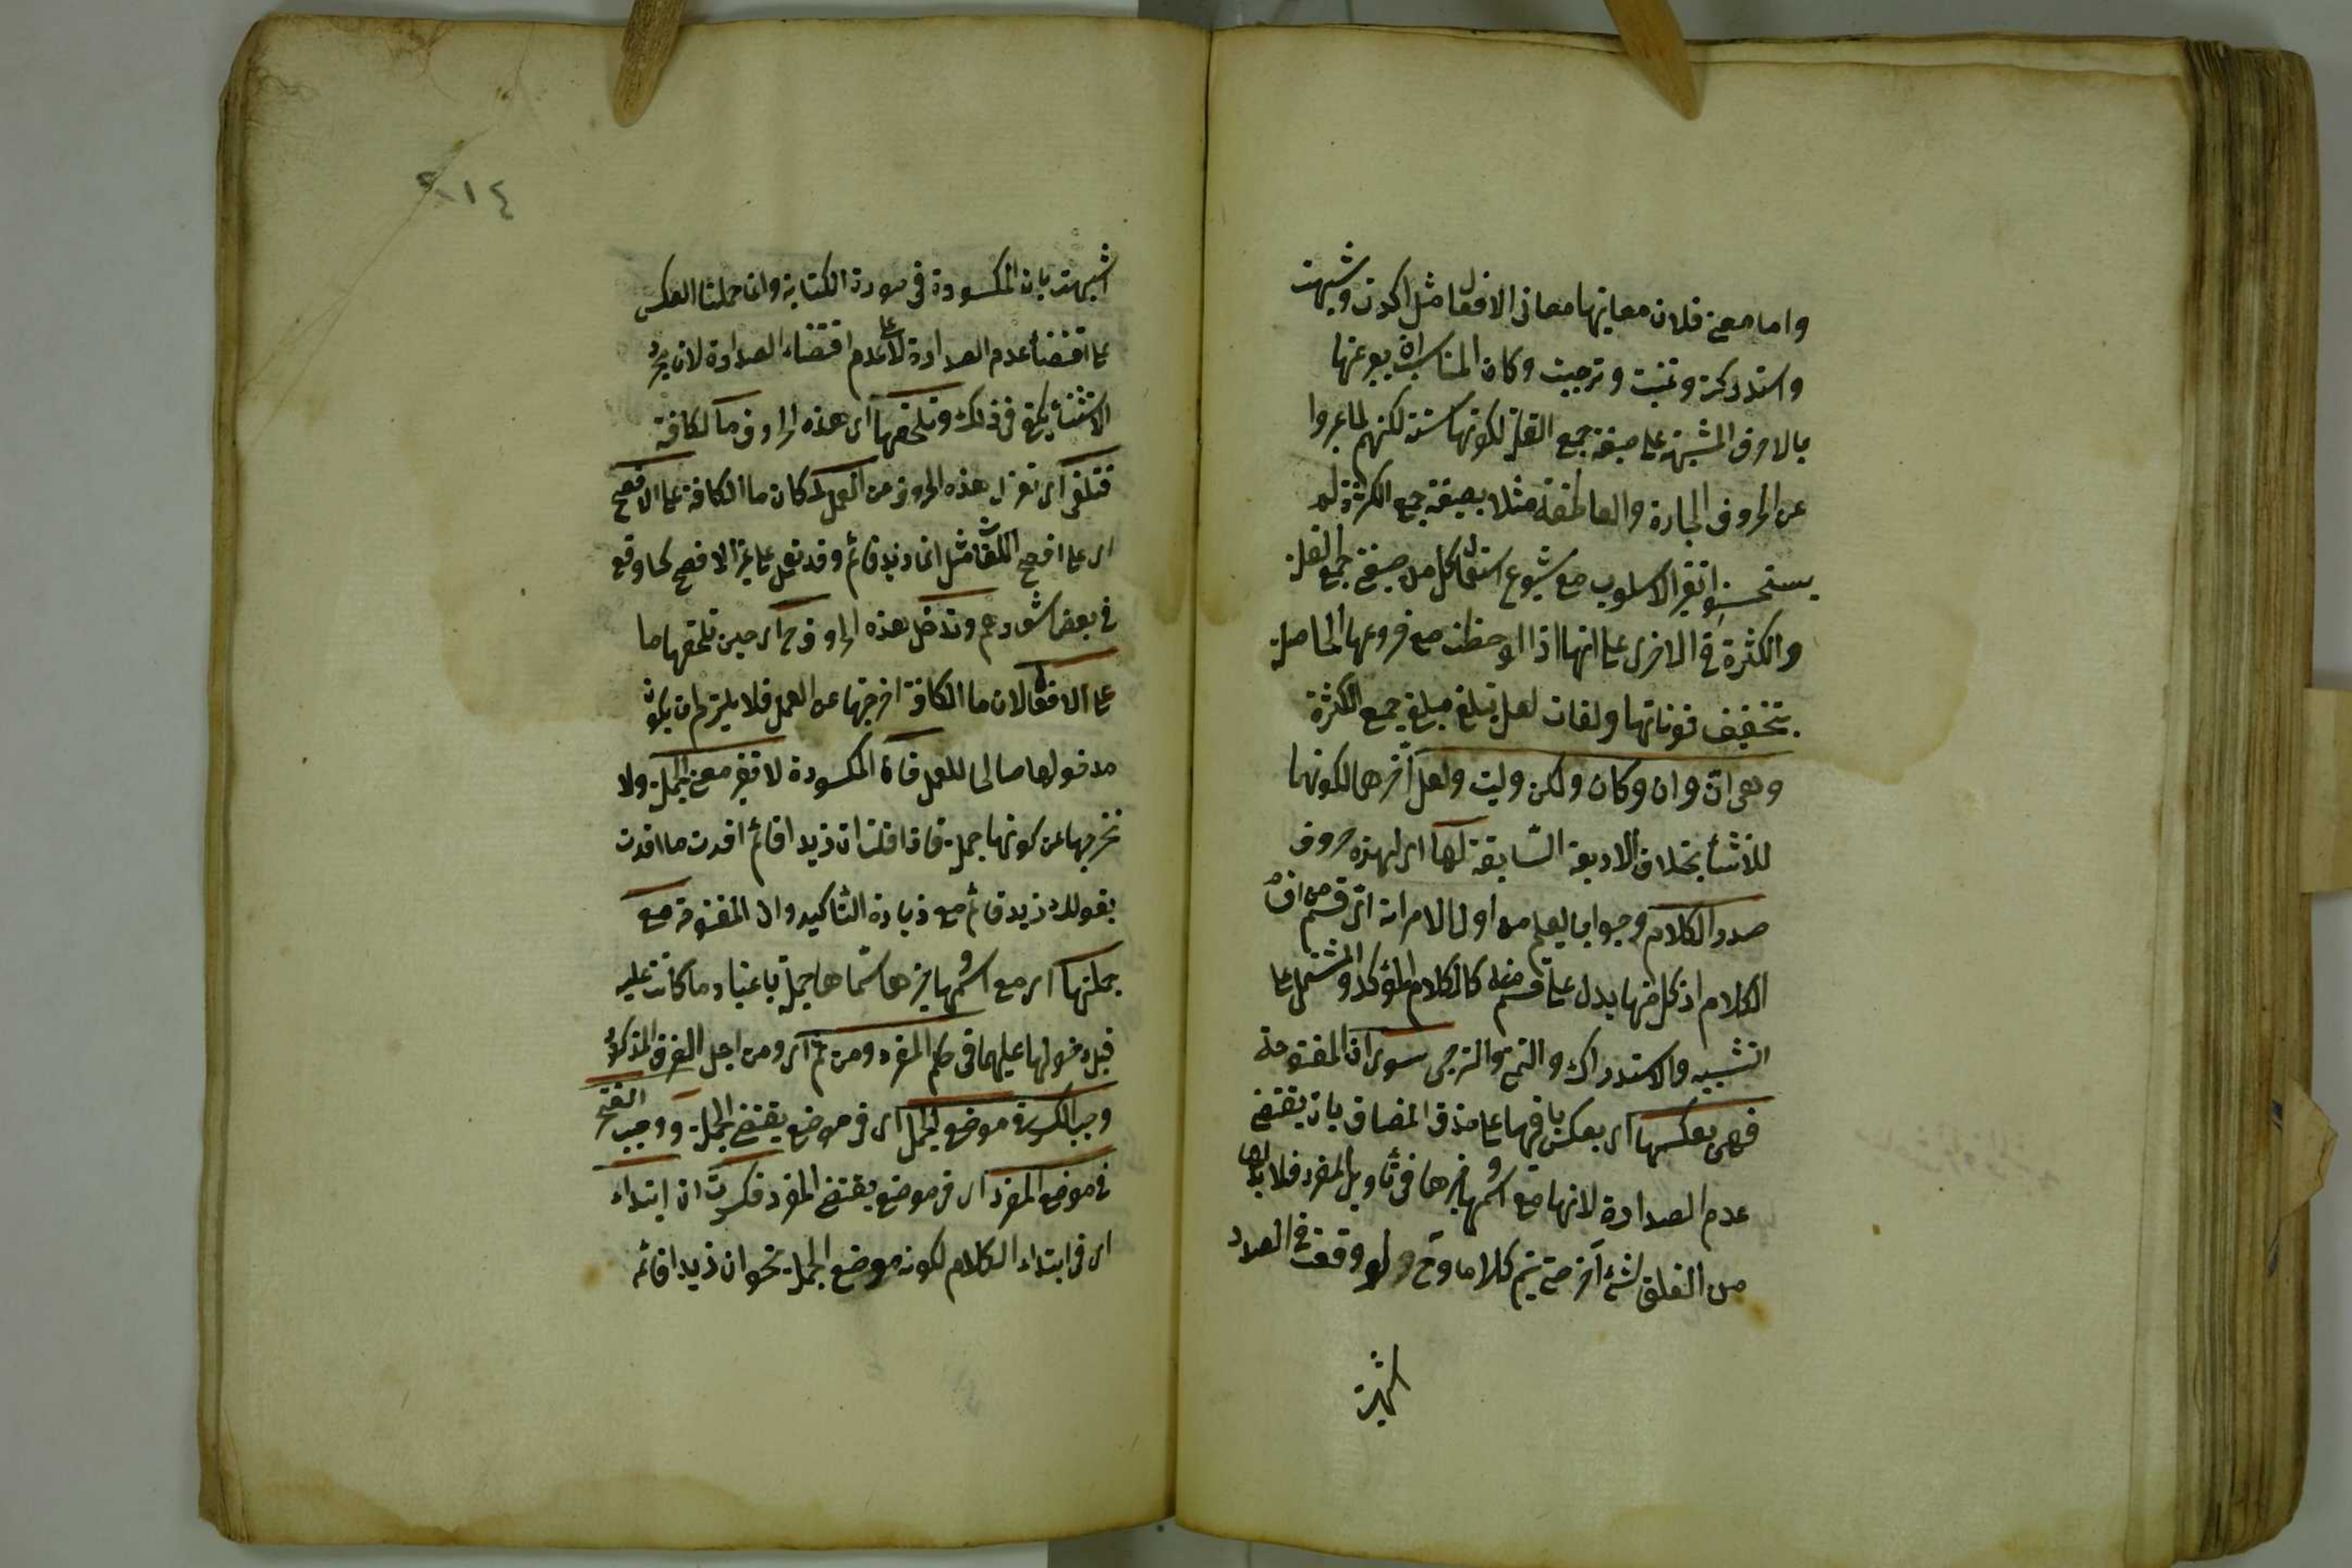 واما معنى فلان معانيها معاني الافعال مثل اكدت وشبهت
واستدركت وتمنيت وترجيت وكان المناسب ان يعبر عنها
بالاحرف المشبهة على صيغة جمع القلة لكونها ستة لكنهم لما عبروا
عن الحروف الجارة والعاطفة مثلا بصيغة جمع الكثرة لم
يستحسنوا تغير الاسلوب مع شيوع استعمال كل من صيغتي جمع القلة
والكثرة في الاخرى على انها اذا لوحظت مع فروعها الحاصلة
بتخفيف نوناتها ولغات لعل تبلغ مبلغ جمع الكثرة
وهي انّ وان وكان ولكن وليت ولعل آخرهما لكونهما
للانشأ بخلاف الاربعة السّابقة لها اى لهذه حروف
صدر الكلام وجوابا ليعلم من اول الامر انه اىّ قسم من اقسام
الكلام اذ كل منها يدل على قسم منه كالكلام المؤكد والمشتمل على
التشبيه والاستدراك والتمنى والترجى سوى انّ المفتوحة
فهى بعكسها اى بعكس باقيها على حذف المضاف بان يقتضى
عدم الصدارة لانها مع اسمها وخبرها فى تأويل المفرد فلا بد لها
من التعلق لشئ آخر حتى يتم كلاما وح لو وقعت في الصدر
اشبهت بان المكسورة فى صورة الكتابة وانما حملنا العكس
على اقتضأ عدم الصدارة لا على عدم اقتضاء الصدارة لان مجرد
الاستثنأ يكفى فى ذلك وتلحقها اى هذه الحروف ما الكافة
فتلغى اى تعزل هذه الحروف من العمل لمكان ما الكافة على الافصح
اى على افصح اللغات مثل انما زيد قائم وقد تعمل على غير الافصح كما وقع
فى بعض اشعارهم وتدخل هذه الحروف ح اى حين تلحقها ما
على الافعال لان ما الكافة اخرجتها عن العمل فلا يلزم ان يكون
مدخولها صالحا للعمل فانّ المكسورة لا تغير معنى الجملة ولا
تخرجها عن كونها جملة فاذا قلت ان زيدا قائم افدت ما افدت
بقولك زيد قائم مع زيادة التأكيد وان المفتوحة مع
جملتها اى مع اسمها وخبرها سمّاها جملة باعتبار ما كانت عليه
قبل دخولها عليهما فى حكم المفرد ومن ثم اى ومن اجل الفرق المذكور
وجب الكسر فى موضع الجمل اى فى موضع يقتضى الجملة ووجب الفتح
فى موضع المفرد اى فى موضع يقتضى المفرد فكسرت ان ابتداء
اى فى ابتداء الكلام لكونه موضع الجملة نحو ان زيدا قائم